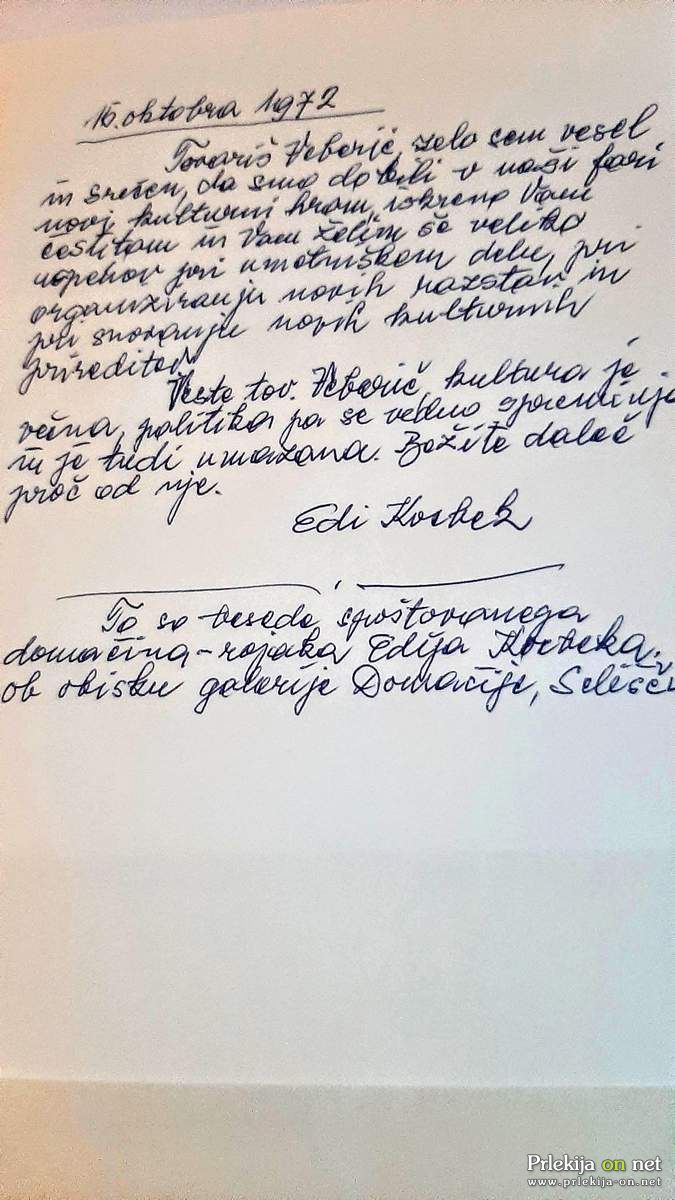 16. oktobra 1972
Tovariš Veberič, zelo sem vesel
in srečen, da smo dobili v naši fari
novi kulturni hram, iskreno Vam
čestitam in Vam želim še veliko
uspehov pri umetniškem delu, pri
organiziranju novih razstav in
pri snovanju novih kulturnih
prireditev.
Veste tov. Veberič, kultura je
večna, politika pa se vedno spreminja
in je tudi umazana. Bežite daleč
proč od nje.
Edi Kocbek
To so besede spoštovanega
domačina-rojaka Edija Kocbeka,
ob obisku galerije Domačije,
Prlekija on net
www.prlekija-on.net